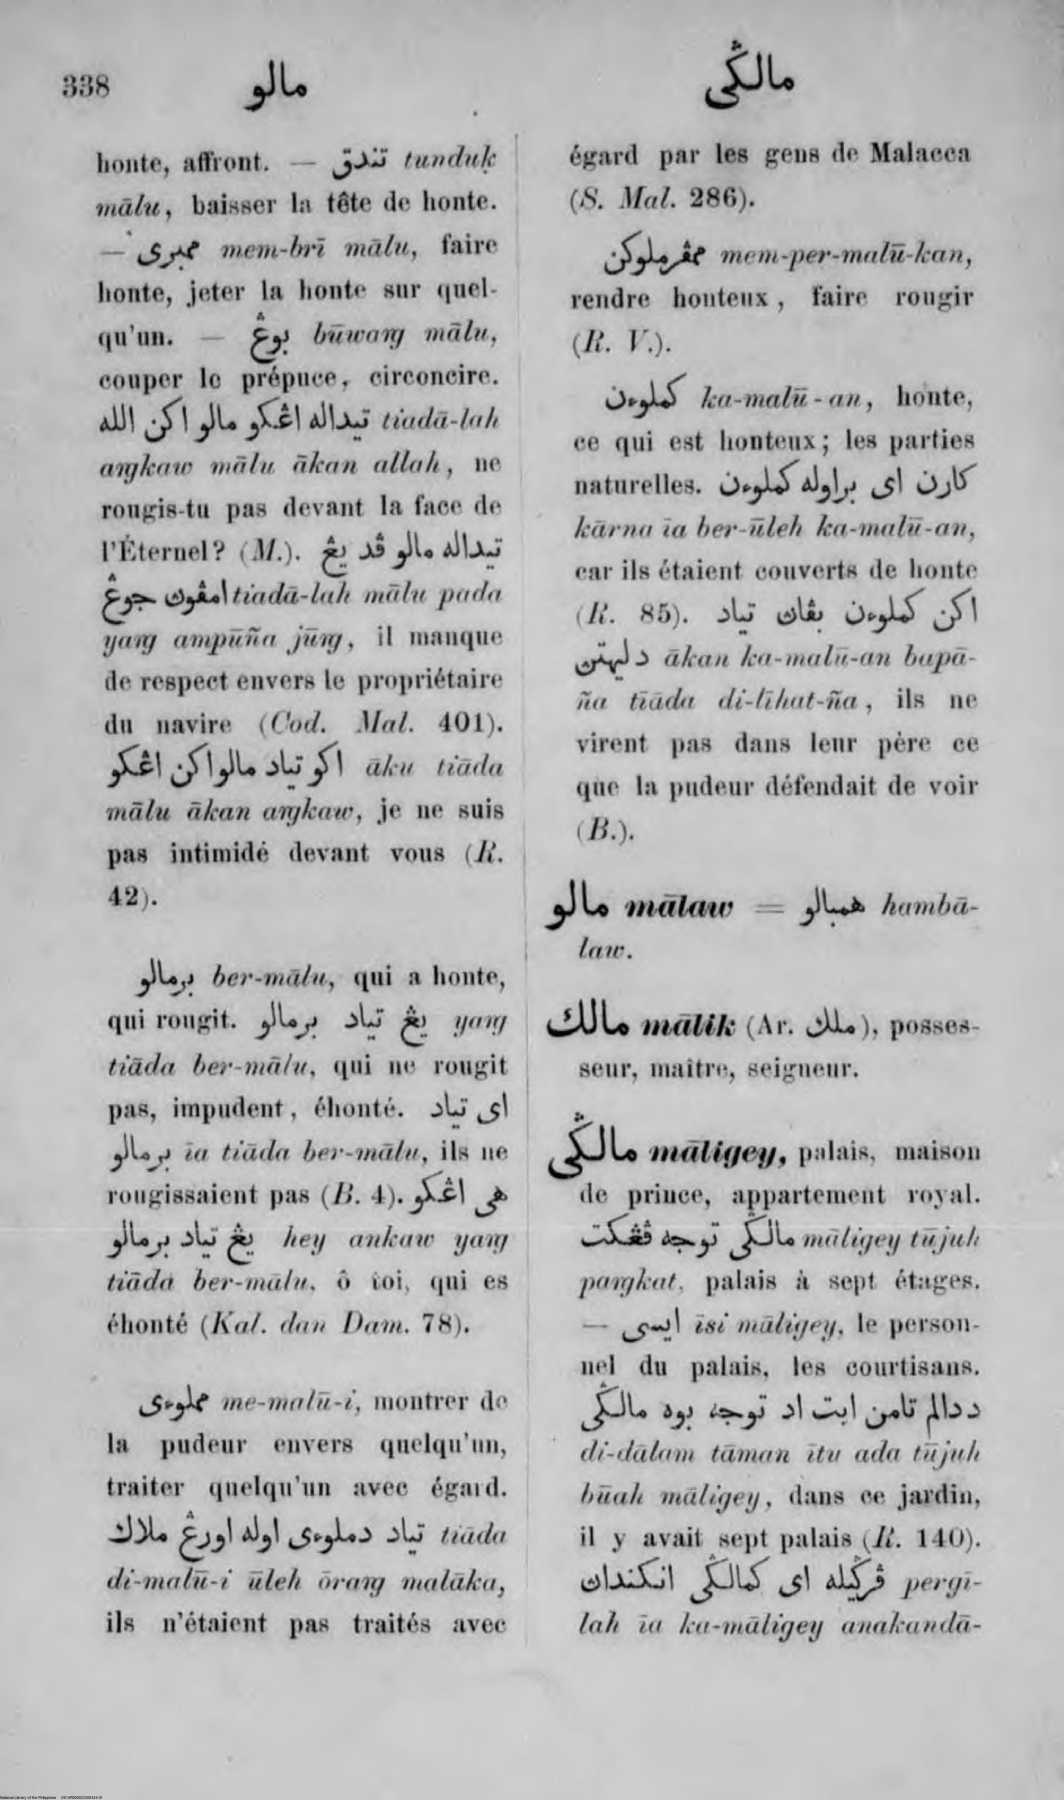 338
مالو
مالڬي
honte, affront. — تندق tunduḳ
mālu, baisser la tête de honte.
— ممبري mem-brī mālu, faire
honte, jeter la honte sur quel-
qu'un. — بوڠ būwaŋ mālu,
couper le prépuce, circoncire.
تيداله اڠكو مالو اكن الله tiadā-lah
aŋkaw mālu ākan allah, ne
rougis-tu pas devant la face de
l'Éternel? (M.). تيداله مالو ڤد يڠ
امڤوڽ جوڠ tiadā-lah mālu pada
yaŋ ampūña jūŋ, il manque
de respect envers le propriétaire
du navire (Cod. Mal. 401).
اكو تياد مالو اكن اڠكو āku tiāda
mālu ākan aŋkaw, je ne suis
pas intimidé devant vous (R.
42).
برمالو ber-mālu, qui a honte,
qui rougit. يڠ تياد برمالو yaŋ
tiāda ber-mālu, qui ne rougit
pas, impudent, éhonté. اي تياد
برمالو īa tiāda ber-mālu, ils ne
rougissaient pas (B. 4). هي اڠكو
يڠ تياد برمالو hey ankaw yaŋ
tiāda ber-mālu, ô toi, qui es
éhonté (Kal. dan Dam. 78).
مملوءي me-malū-i, montrer de
la pudeur envers quelqu'un,
traiter quelqu'un avec égard.
تياد دملوءي اوله اورڠ ملاك tiāda
di-malū-i ūleh ōraŋ malāka,
ils n'étaient pas traités avec
égard par les gens de Malacca
(S. Mal. 286).
ممڤرملوكن mem-per-malū-kan,
rendre honteux, faire rougir
(R. V.).
كملوءن ka-malū-an, honte,
ce qui est honteux; les parties
naturelles. كارن اي براوله كملوءن
kārna īa ber-ūleh ka-malū-an,
car ils étaient couverts de honte
(R. 85). اكن كملوءن بڤاڽ تياد
دليهتڽ ākan ka-malū-an bapā-
ña tīāda di-līhat-ña, ils ne
virent pas dans leur père ce
que la pudeur défendait de voir
(B.).
مالو mālaw = همبالو hambā-
law.
مالك mālik (Ar. ملك), posses-
seur, maître, seigneur.
مالڬي māligey, palais, maison
de prince, appartement royal.
مالڬي توجه ڤڠكت māligey tūjuh
paŋkat, palais à sept étages.
— ايسي īsi māligey, le person-
nel du palais, les courtisans.
ددالم تامن ايت اد توجه بوه مالڬي
di-dālam tāman ītu ada tūjuh
būah māligey, dans ce jardin,
il y avait sept palais (R. 140).
ڤرڬيله اي كمالڬي انكنداڽ pergī-
lah īa ka-māligey anakandā-